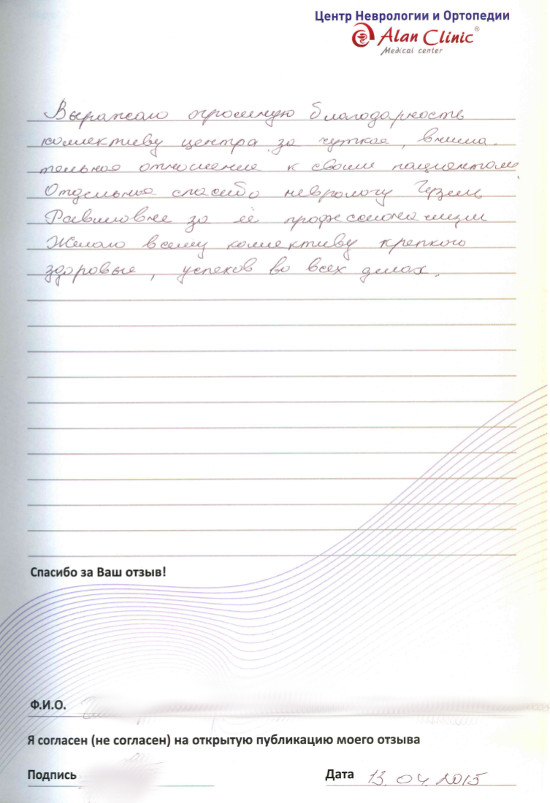 Центр Неврологии и Ортопедии
Alan Clinic®
Medical center
Выражаю огромную благодарность
коллективу центра за чуткое, внима-
тельное отношение к своим пациентам.
Отдельное спасибо неврологу Гузель
Равиловне за её профессионализм
Желаю всему коллективу крепкого
здоровья, успехов во всех делах.
Спасибо за Ваш отзыв!
Ф.И.О.
Я согласен (не согласен) на открытую публикацию моего отзыва
Подпись
Дата 13.04.2015